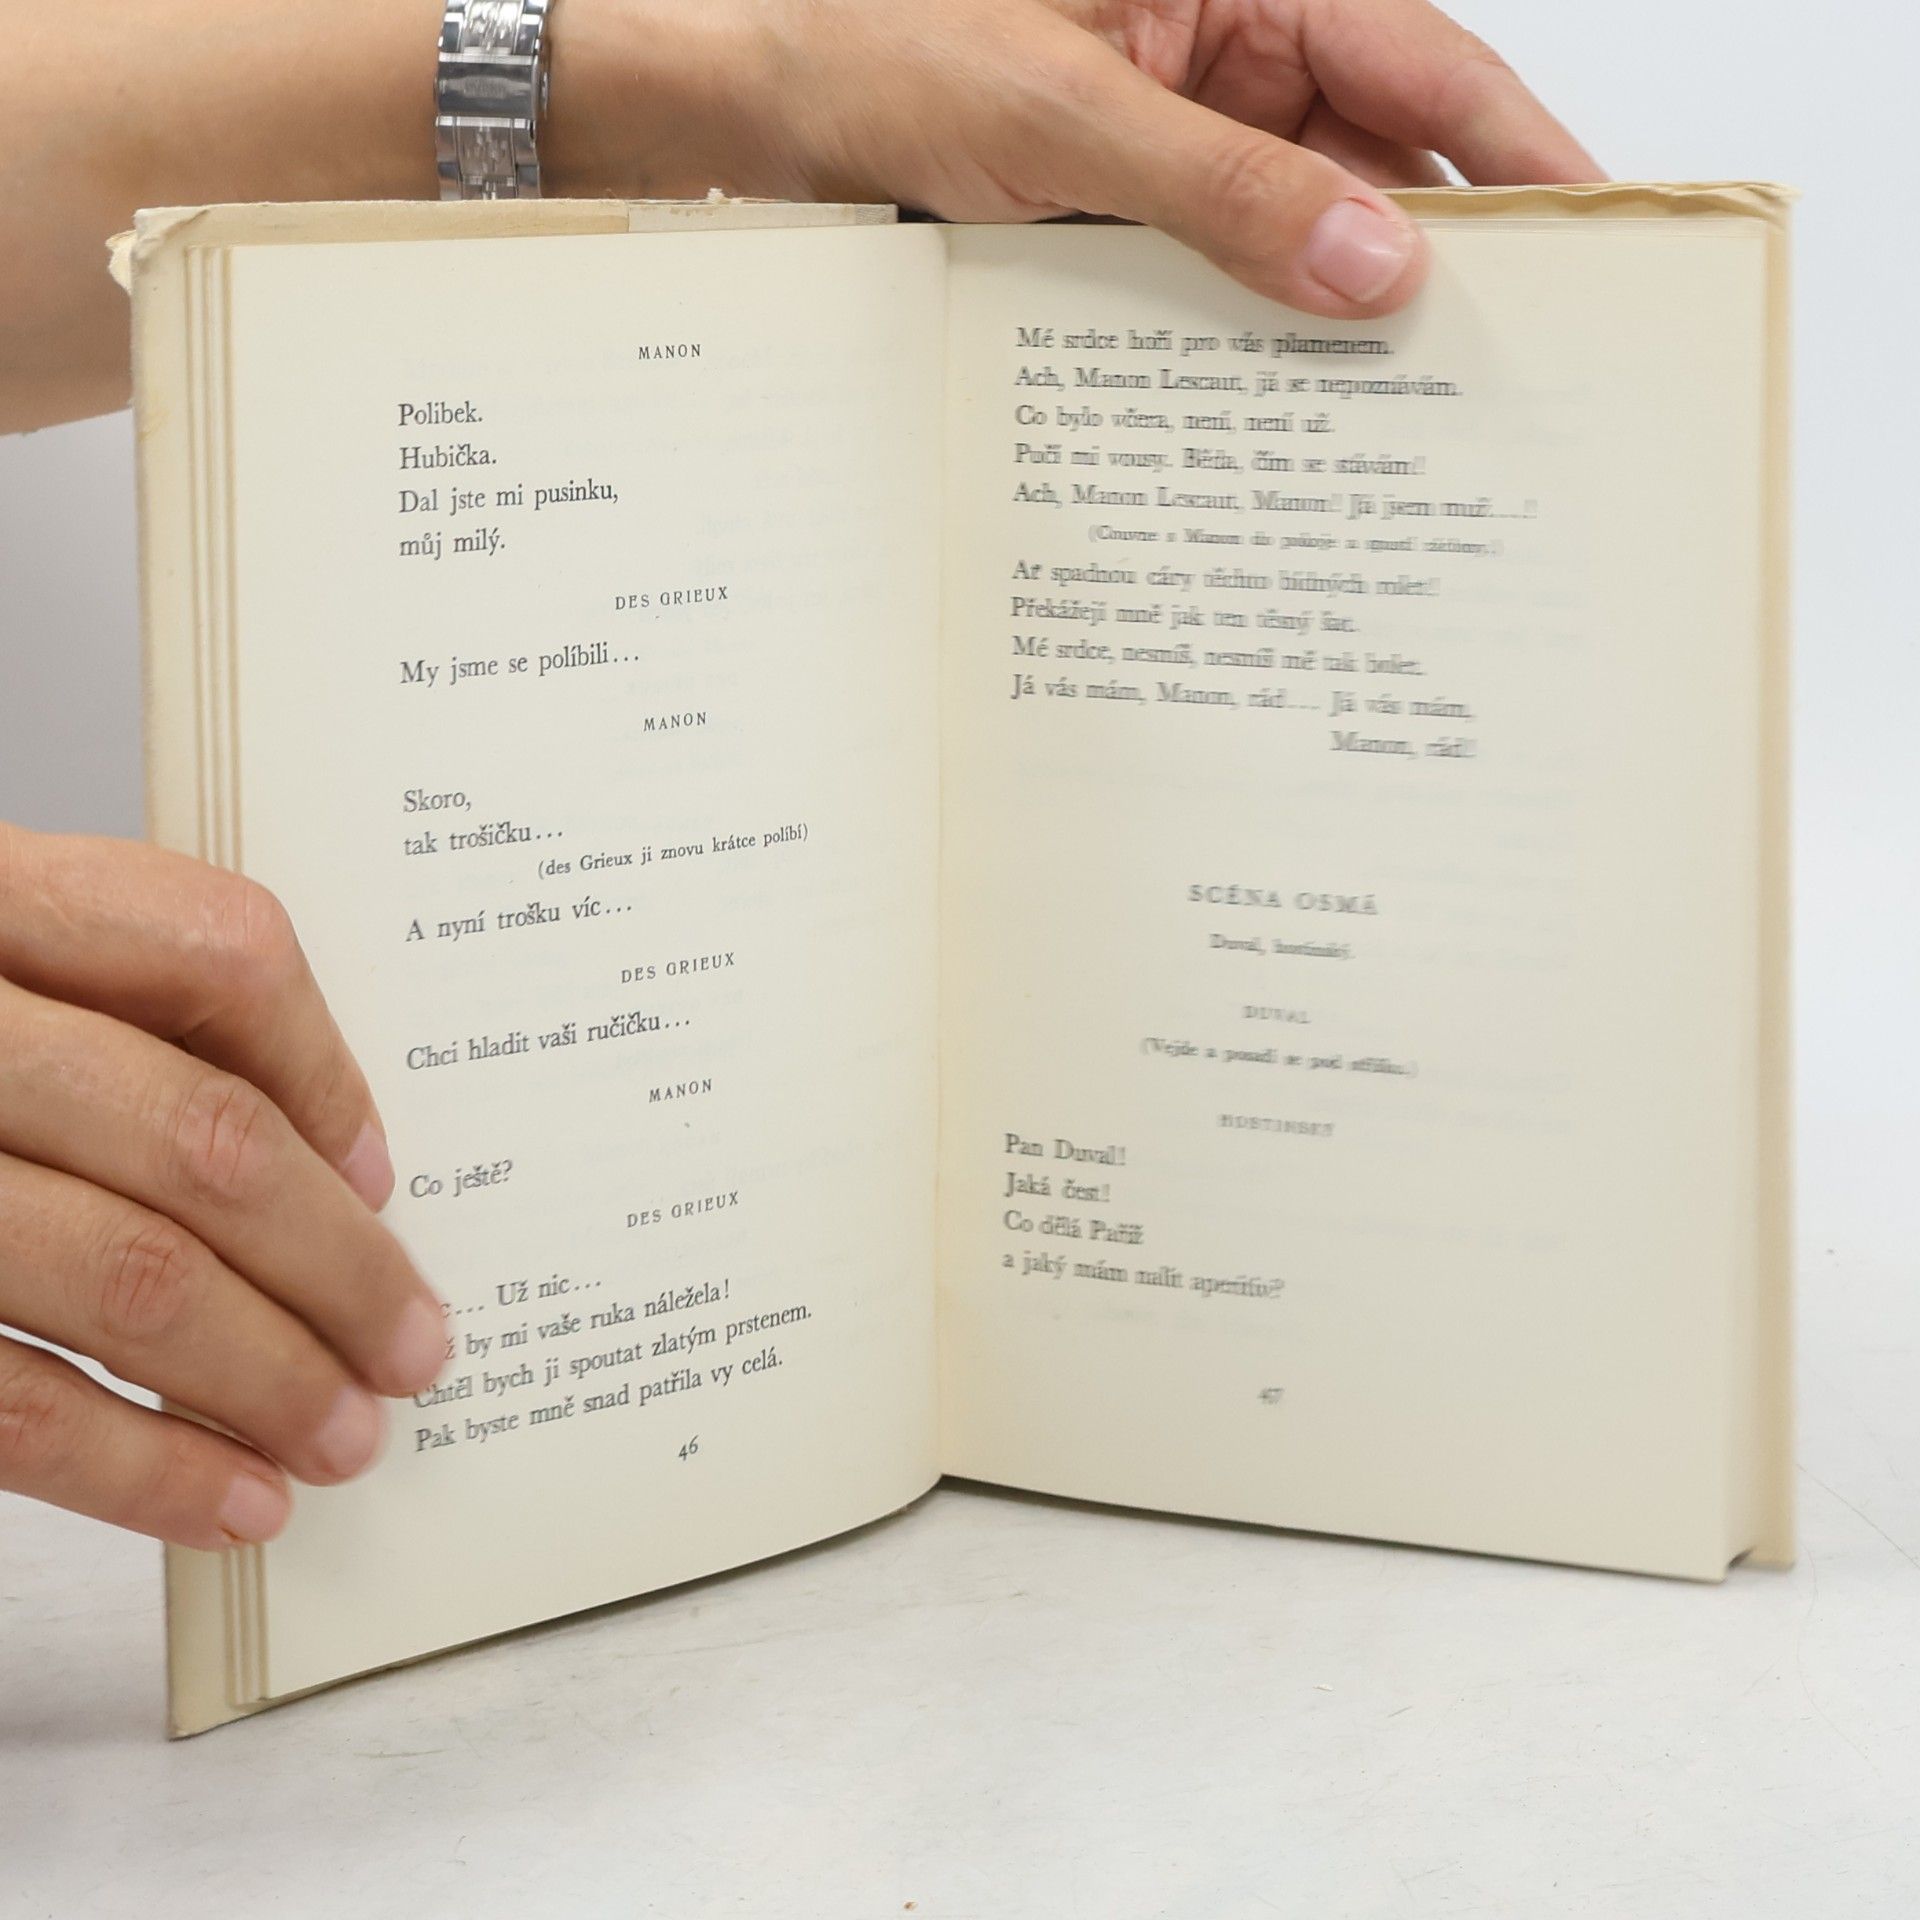 MANON
Polibek.
Hubička.
Dal jste mi pusinku,
můj milý.
DES GRIEUX
My jsme se políbili...
MANON
Skoro,
tak trošičku...
(des Grieux ji znovu krátce políbí)
A nyní trošku víc...
DES GRIEUX
Chci hladit vaši ručičku...
MANON
Co ještě?
DES GRIEUX
Už nic...
by mi vaše ruka náležela!
Chtěl bych ji spoutat zlatým prstenem.
Pak byste mně snad patřila vy celá.
46
Mé srdce hoří pro vás plamenem.
Ach, Manon Lescaut, já se nepoznávám.
Co bylo včera, není, není už.
Pučí mi vousy. Běda, čím se stávám!
Ach, Manon Lescaut, Manon! Já jsem muž...!
(Couvne s Manon do pokoje a spustí záclony.)
Ať spadnou cáry těchto bídných rolet!
Překážejí mně jak ten těsný šat.
Mé srdce, nesmíš, nesmíš mě tak bolet.
Já vás mám, Manon, rád... Já vás mám,
Manon, rád!
SCÉNA OSMÁ
Duval, hostinský.
DUVAL
(Vejde a posadí se pod stříšku.)
HOSTINSKÝ
Pan Duval!
Jaká čest!
Co dělá Paříž
a jaký mám nalít aperitiv?
47